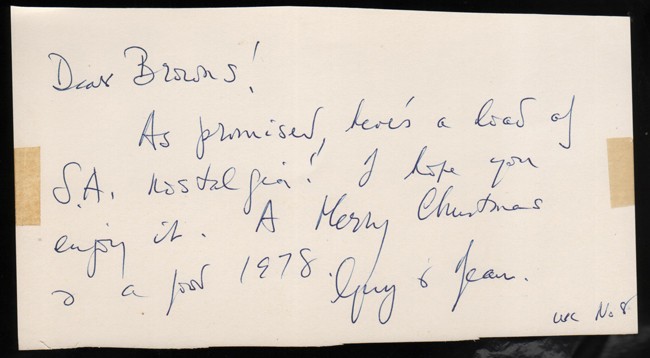 Dear Browns!
As promised, here's a load of
S.A. nostalgia! I hope you
enjoy it. A Merry Christmas
& a good 1978.
& Jean.
No 8